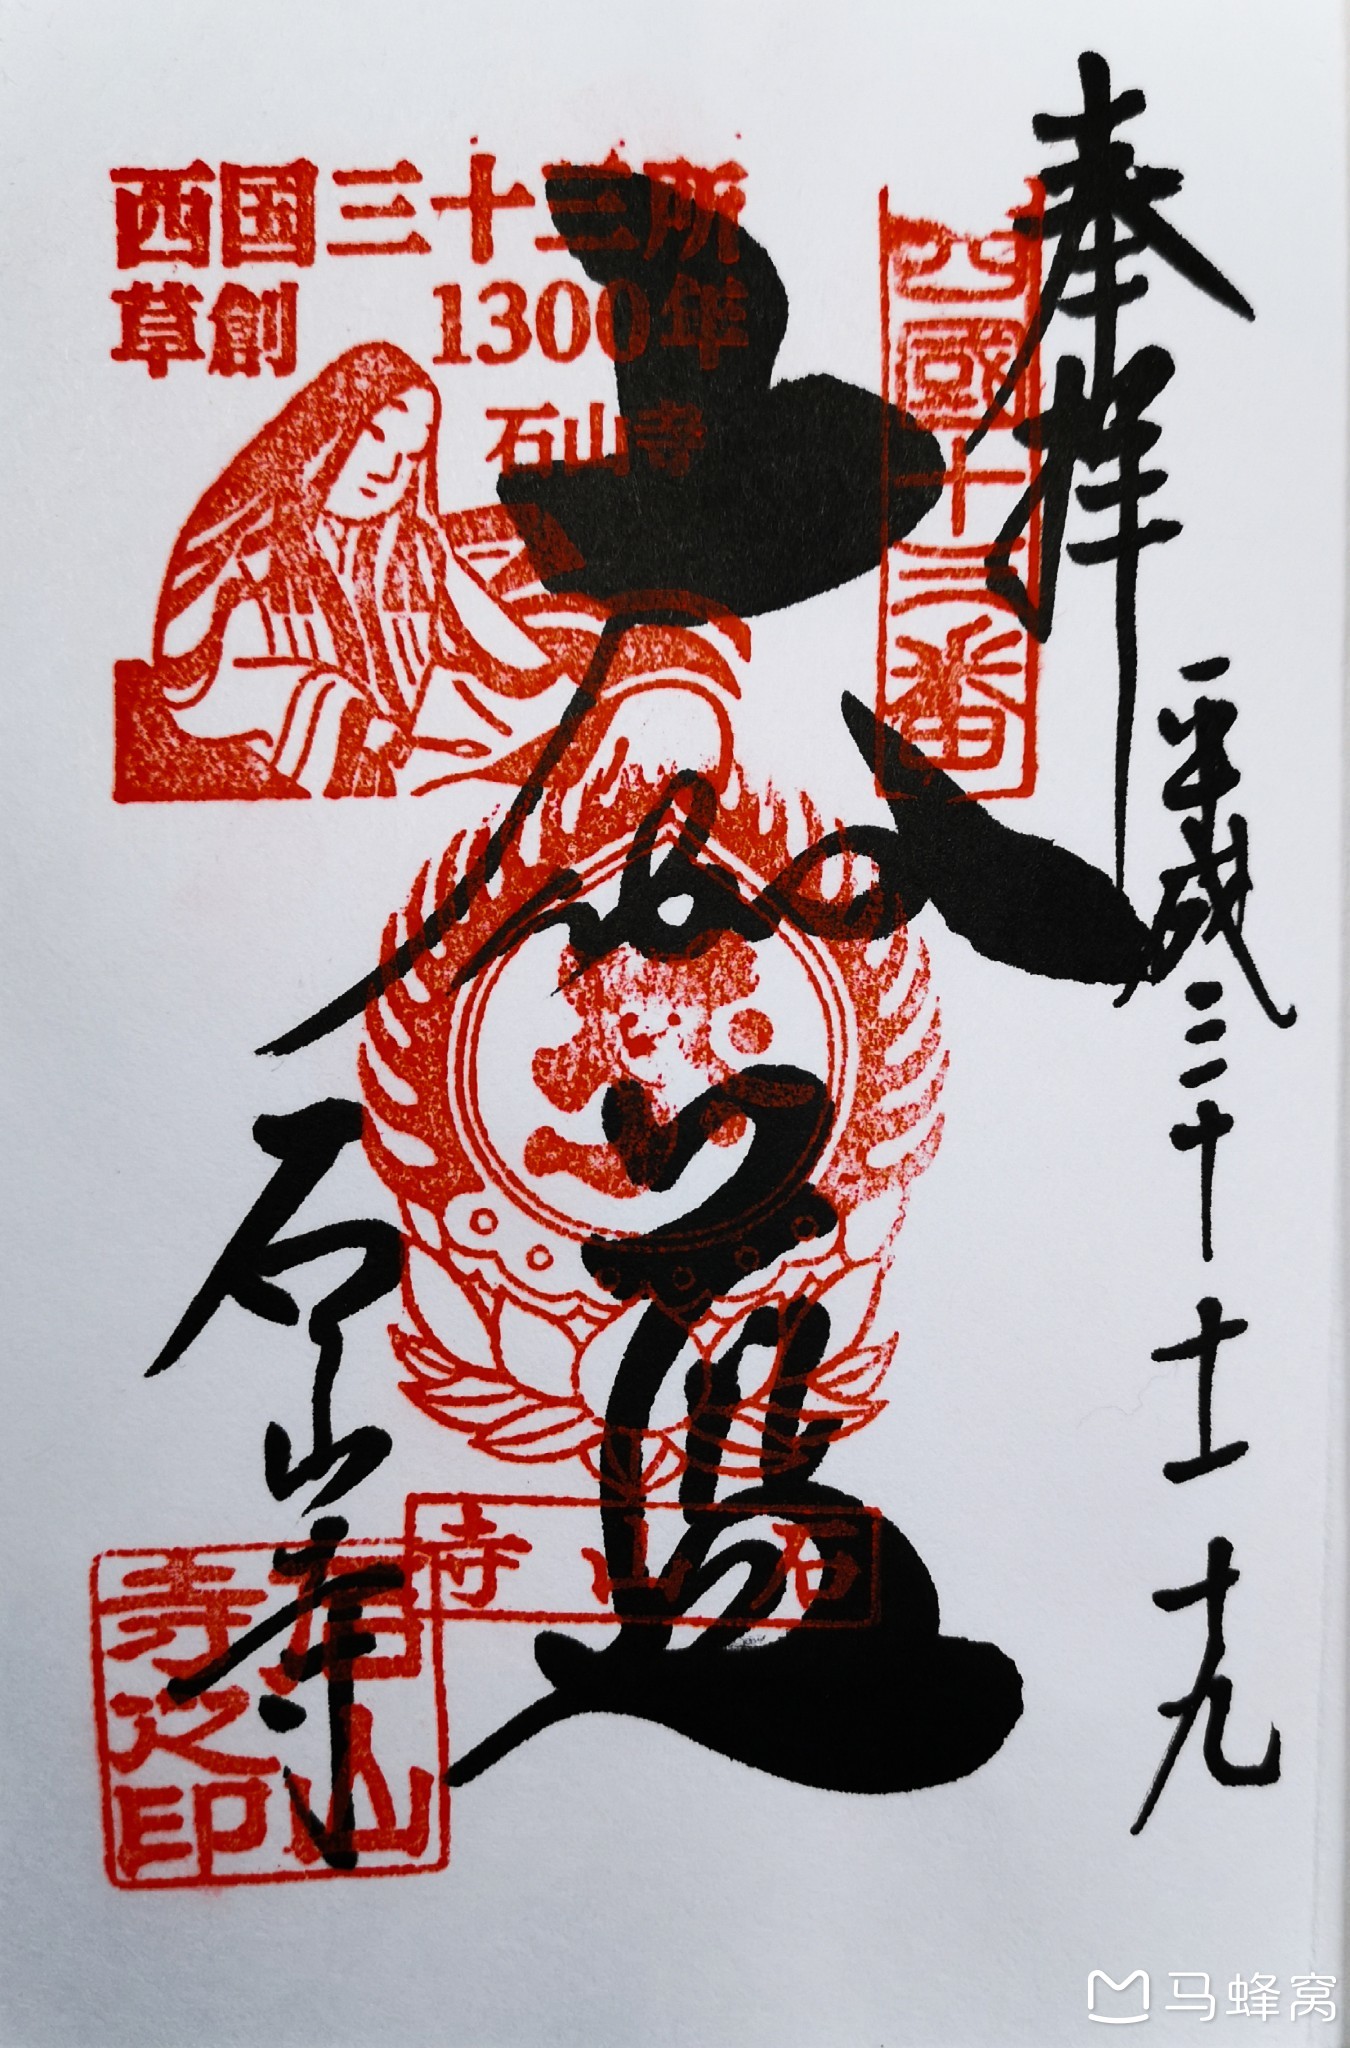 奉拝
平成三十 十一 十九
西國十三番
西国三十三所
草創 1300年
石山寺
大伽藍
石山寺
石山寺
石山寺之印
马蜂窝